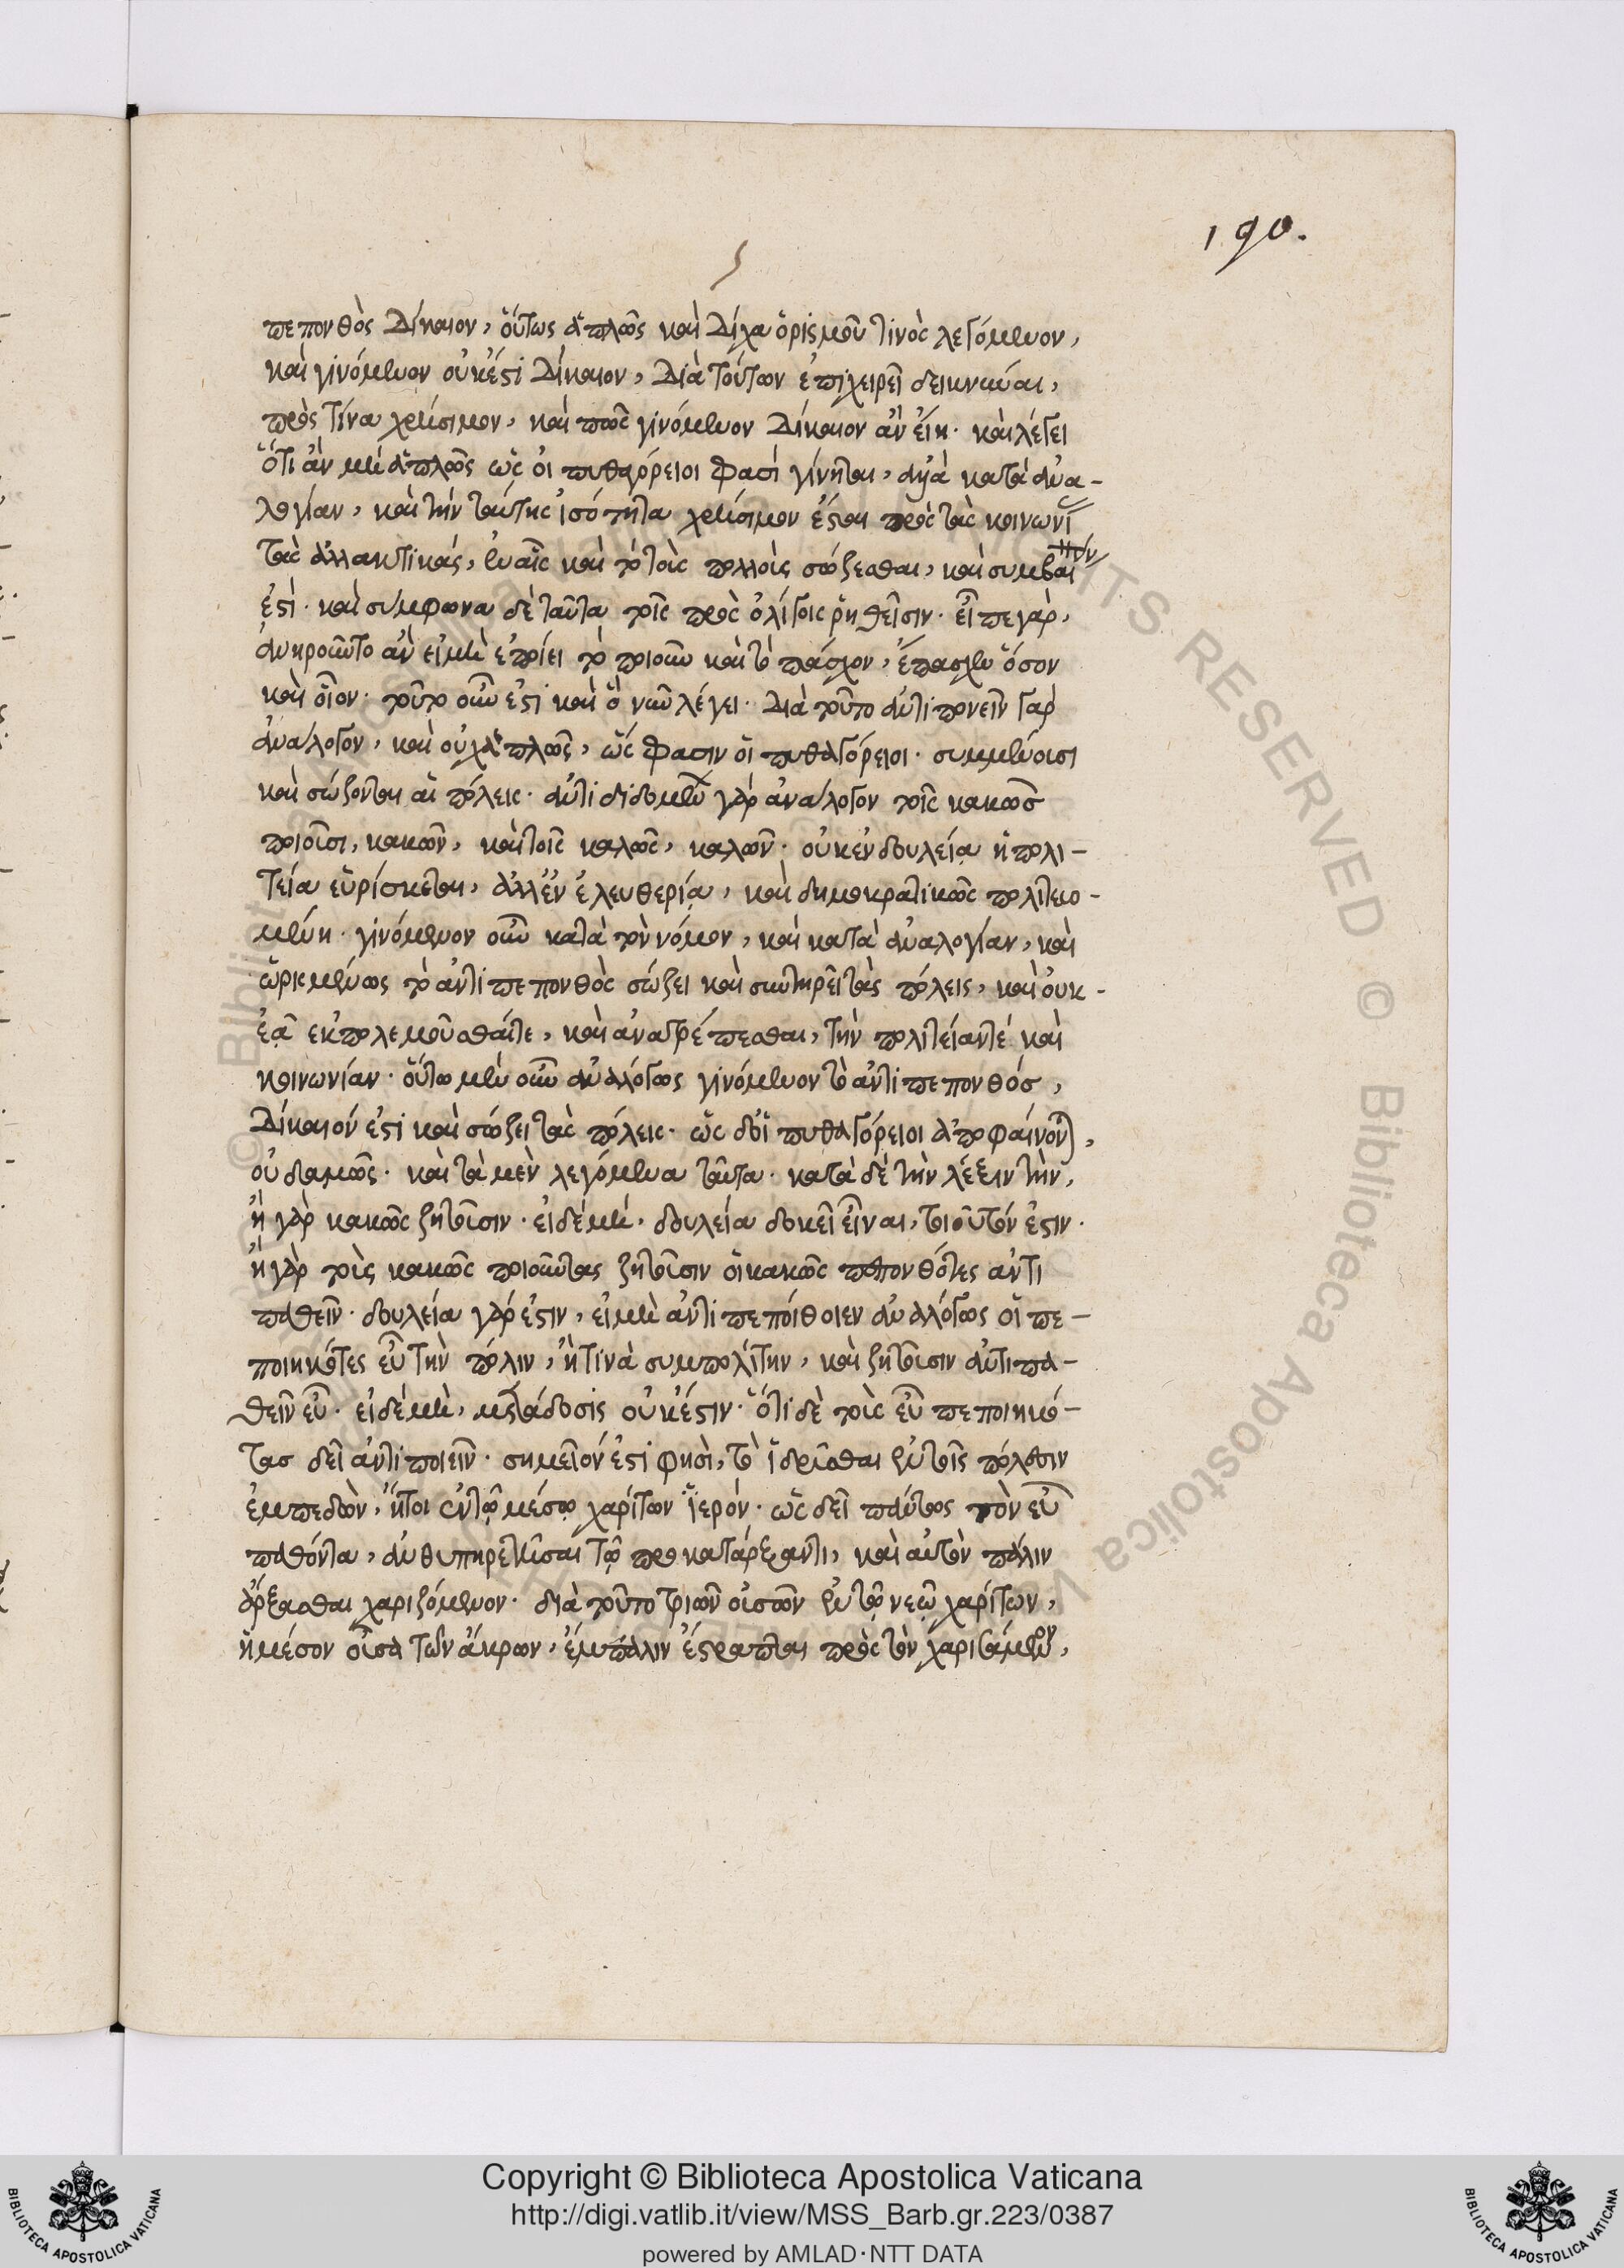 190.
πεπονθὸς δίκαιον, οὕτως ἁπλῶς καὶ δίχα ὁρισμοῦ τινὸς λεγόμενον,
καὶ γινόμενον οὐκ ἔστι δίκαιον, διὰ τούτων ἐπιχειρεῖ δεικνύναι,
πρὸς τίνα χρήσιμον, καὶ πῶς γινόμενον δίκαιον ἂν εἴη. καὶ λέγει
ὅτι ἂν μὴ ἁπλῶς ὡς οἱ πυθαγόρειοι φασὶ γίνηται, ἀλλὰ κατὰ ἀνα-
λογίαν, καὶ τὴν ταύτης ἰσότητα χρήσιμον ἔσται πρὸς τὰς κοινωνί
τὰς ἀλλακτικάς, ἐν αἷς καὶ τὸ τοὺς πολλοὺς σώζεσθαι, καὶ συμβαί
ἐστὶ. καὶ σύμφωνα δὲ ταῦτα τοῖς πρὸς ὀλίγοις ῥηθεῖσιν. εἶπε γὰρ,
ἀνῃροῦντο ἂν εἰ μὴ ἐποίει τὸ ποιοῦν καὶ τὸ πάσχον, ἔπασχεν ὅσον
καὶ οἷον. τοῦτο οὖν ἐστὶ καὶ ὃ νῦν λέγει. διὰ τοῦτο ἀντιπονεῖν γὰρ
ἀνάλογον, καὶ οὐχ ἁπλῶς, ὥς φασιν οἱ πυθαγόρειοι. συμμένουσι
καὶ σώζονται αἱ πόλεις. ἀντιδιδομένου γὰρ ἀνάλογον τοῖς κακῶς
ποιοῦσι, κακῶν, καὶ τοῖς καλῶς, καλῶν. οὐκ ἐν δουλείᾳ ἡ πολι-
τεία εὑρίσκεται, ἀλλ' ἐν ἐλευθερίᾳ, καὶ δημοκρατικῶς πολιτευο-
μένη. γινόμενον οὖν κατὰ τὸν νόμον, καὶ κατὰ ἀναλογίαν, καὶ
ὡρισμένως τὸ ἀντιπεπονθὸς σώζει καὶ συντηρεῖ τὰς πόλεις, καὶ οὐκ-
ἐᾷ ἐκπολεμοῦσθαί τε, καὶ ἀνατρέπεσθαι, τὴν πολιτείαν τέ καὶ
κοινωνίαν. οὕτω μὲν οὖν ἀναλόγως γινόμενον τὸ ἀντιπεπονθός,
δίκαιόν ἐστι καὶ σώζει τὰς πόλεις. ὡς δὲ οἱ πυθαγόρειοι ἀποφαίνονται,
οὐδαμῶς. καὶ τὰ μὲν λεγόμενα ταῦτα. κατὰ δὲ τὴν λέξιν τὴν,
ἢ γὰρ κακῶς ζητοῦσιν. εἰ δὲ μὴ, δουλεία δοκεῖ εἶναι, τοιοῦτόν ἐστιν.
ἢ γὰρ τοὺς κακῶς ποιοῦντας ζητοῦσιν οἱ κακῶς πεπονθότες ἀντι
παθεῖν. δουλεία γάρ ἐστιν, εἰ μὴ ἀντιπεπόιθοιεν ἀναλόγως οἱ πε-
ποιηκότες εὖ τὴν πόλιν, ἢ τινὰ συμπολίτην, καὶ ζητοῦσιν ἀντιπα-
θεῖν εὖ. εἰ δὲ μὴ, μετάδοσις οὐκ ἔστιν. ὅτι δὲ τοὺς εὖ πεποιηκό-
τας δεῖ ἀντιποιεῖν. σημεῖόν ἐστι φησὶ, τὸ ἱδρῦσθαι ἐν ταῖς πόλεσιν
ἐμπεδὼν, ἤτοι ἐν τῷ μέσῳ χαρίτων ἱερόν. ὡς δεῖ πάντως τὸν εὖ
παθόντα, ἀνθυπηρετῆσαι τῷ προκατάρξαντι, καὶ αὐτὸν πάλιν
ἄρξασθαι χαριζόμενον. διὰ τοῦτο τριῶν οὐσῶν ἐν τῷ νεῷ χαρίτων,
ἡ μέσον οὖσα τῶν ἄκρων, ἔμπαλιν ἔστραπται πρὸς τὸν χαρισάμενον,
Copyright © Biblioteca Apostolica Vaticana
http://digi.vatlib.it/view/MSS_Barb.gr.223/0387
powered by AMLAD·NTT DATA